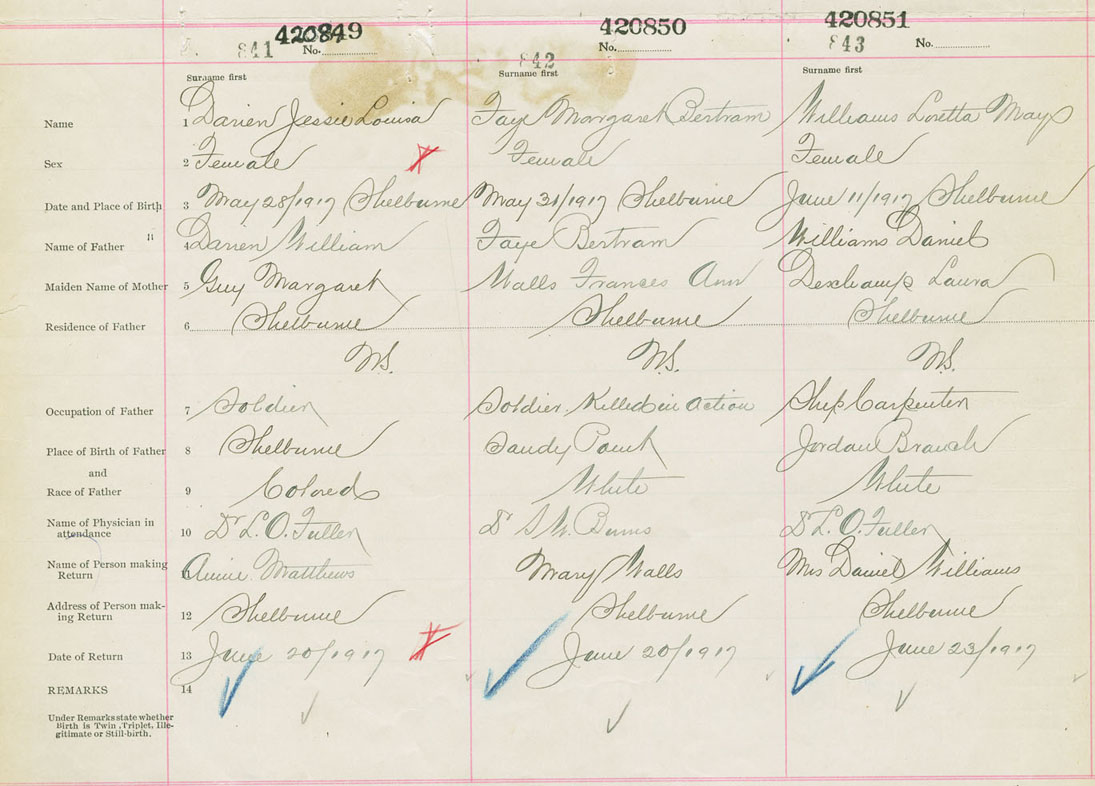 420849 420850 420851
841 No. 842 No. 843 No.
Surname first Surname first Surname first
Name 1 Darien Jessie Louisa Faye Margaret Bertram Williams Loretta May
Sex 2 Female Female Female
Date and Place of Birth 3 May 28/1917 Shelburne May 31/1917 Shelburne June 11/1917 Shelburne
Name of Father 4 Darien William Faye Bertram Williams Daniel
Maiden Name of Mother 5 Guy Margaret Walls Frances Ann Deschamp Laura
Residence of Father 6 Shelburne Shelburne Shelburne
N.S. N.S. N.S.
Occupation of Father 7 Soldier Soldier, Killed in Action Ship Carpenter
Place of Birth of Father 8 Shelburne Sandy Point Jordan Branch
and
Race of Father 9 Colored White White
Name of Physician in
attendance 10 Dr L. O. Fuller Dr S W. Burns Dr L. O. Fuller
Name of Person making
Return 11 Annie Matthews Mary Walls Mrs Daniel Williams
Address of Person mak-
ing Return 12 Shelburne Shelburne Shelburne
Date of Return 13 June 20/1917 June 20/1917 June 23/1917
REMARKS 14
Under Remarks state whether
Birth is Twin, Triplet, Ille-
gitimate or Still-birth.